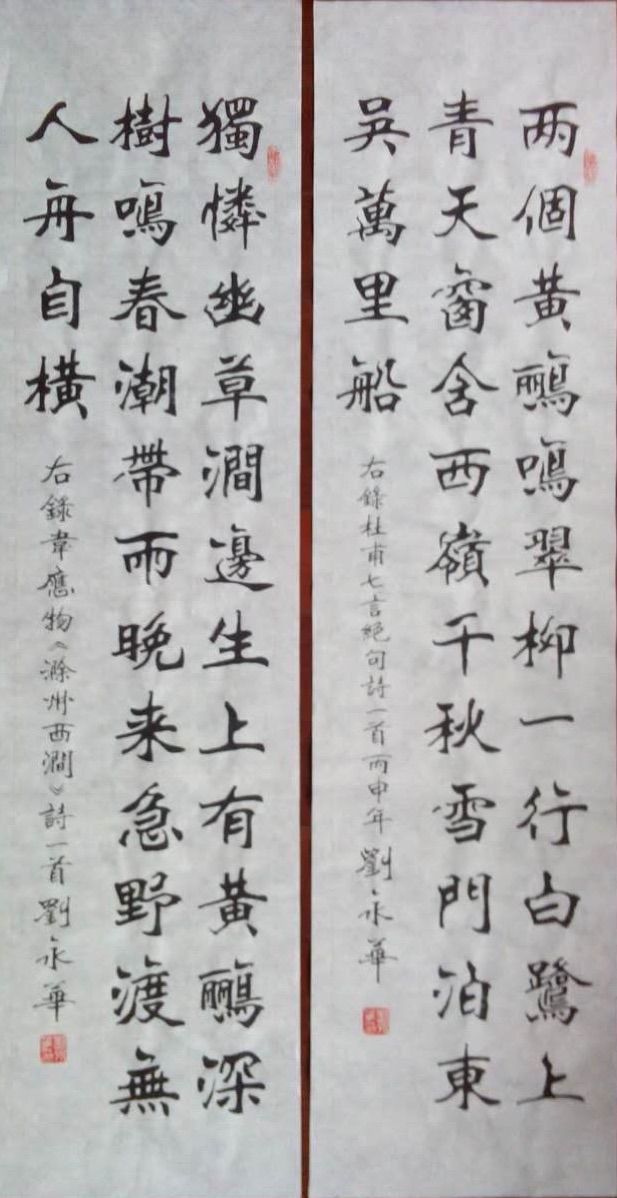 两個黃鸝鳴翠柳一行白鷺上
青天窗含西嶺千秋雪門泊東
吳萬里船
右錄杜甫七言絕句詩一首丙申年劉永華
獨憐幽草澗邊生上有黃鸝深
樹鳴春潮帶雨晚来急野渡無
人舟自橫
右錄韋應物《滁州西澗》詩一首劉永華